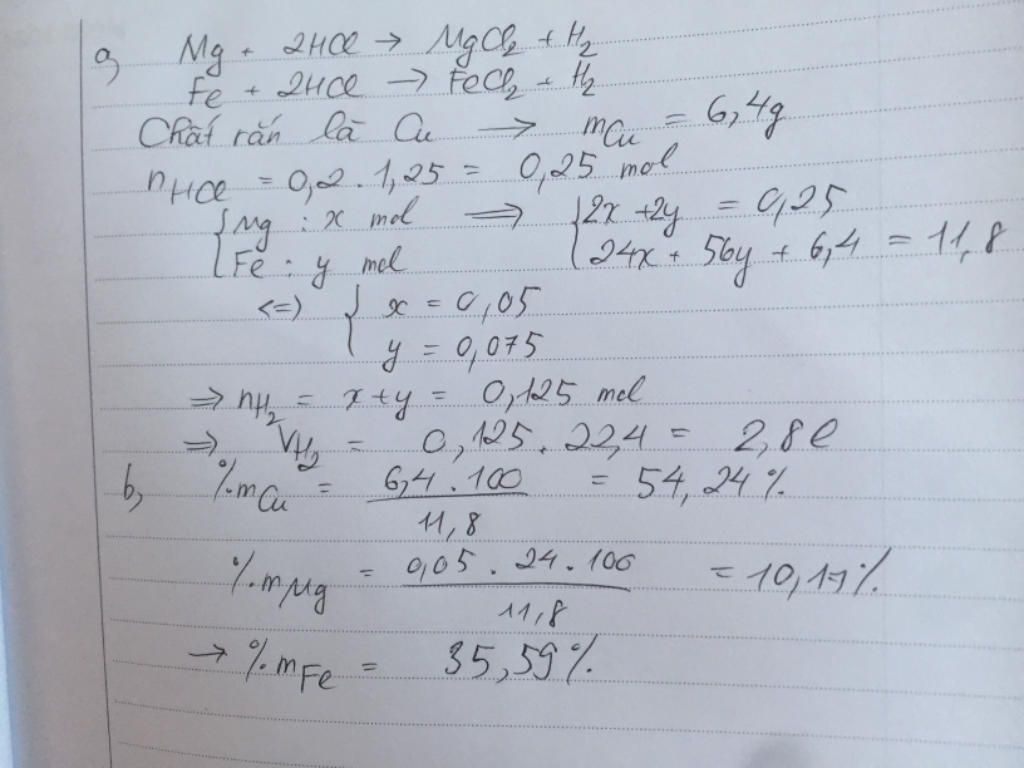 a, Mg + 2HCl → MgCl2 + H2
Fe + 2HCl → FeCl2 + H2
Chất rắn là Cu → mCu = 6,4g
nHCl = 0,2 . 1,25 = 0,25 mol
{ Mg : x mol ⇒ { 2x + 2y = 0,25
Fe : y mol 24x + 56y + 6,4 = 11,8
<=> { x = 0,05
y = 0,075
⇒ nH2 = x+y = 0,125 mol
⇒ VH2 = 0,125 . 22,4 = 2,8l
b, %mCu = 6,4 . 100 / 11,8 = 54,24%
%mMg = 0,05 . 24 . 100 / 11,8 = 10,17%
→ %mFe = 35,59%